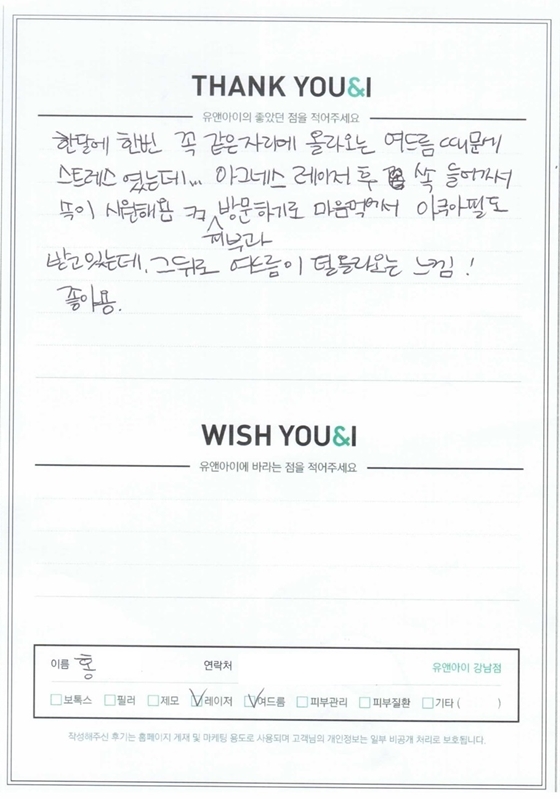 THANK YOU&I
유앤아이의 좋았던 점을 적어주세요
한달에 한번 꼭 같은자리에 올라오는 여드름 때문에
스트레스 였는데... 아그네스 레이저 후 쏙 들어가서
속이 시원해용 방문하기로 마음먹어서 아쿠아필도
피부과
받고있는데, 그뒤로 여드름이 덜올라오는 느낌!
좋아용.
WISH YOU&I
유앤아이에 바라는 점을 적어주세요
이름 홍 연락처 유앤아이 강남점
보톡스 필러 제모 레이저 여드름 피부관리 피부질환 기타 ( )
작성해주신 후기는 홈페이지 게재 및 마케팅 용도로 사용되며 고객님의 개인정보는 일부 비공개 처리로 보호됩니다.